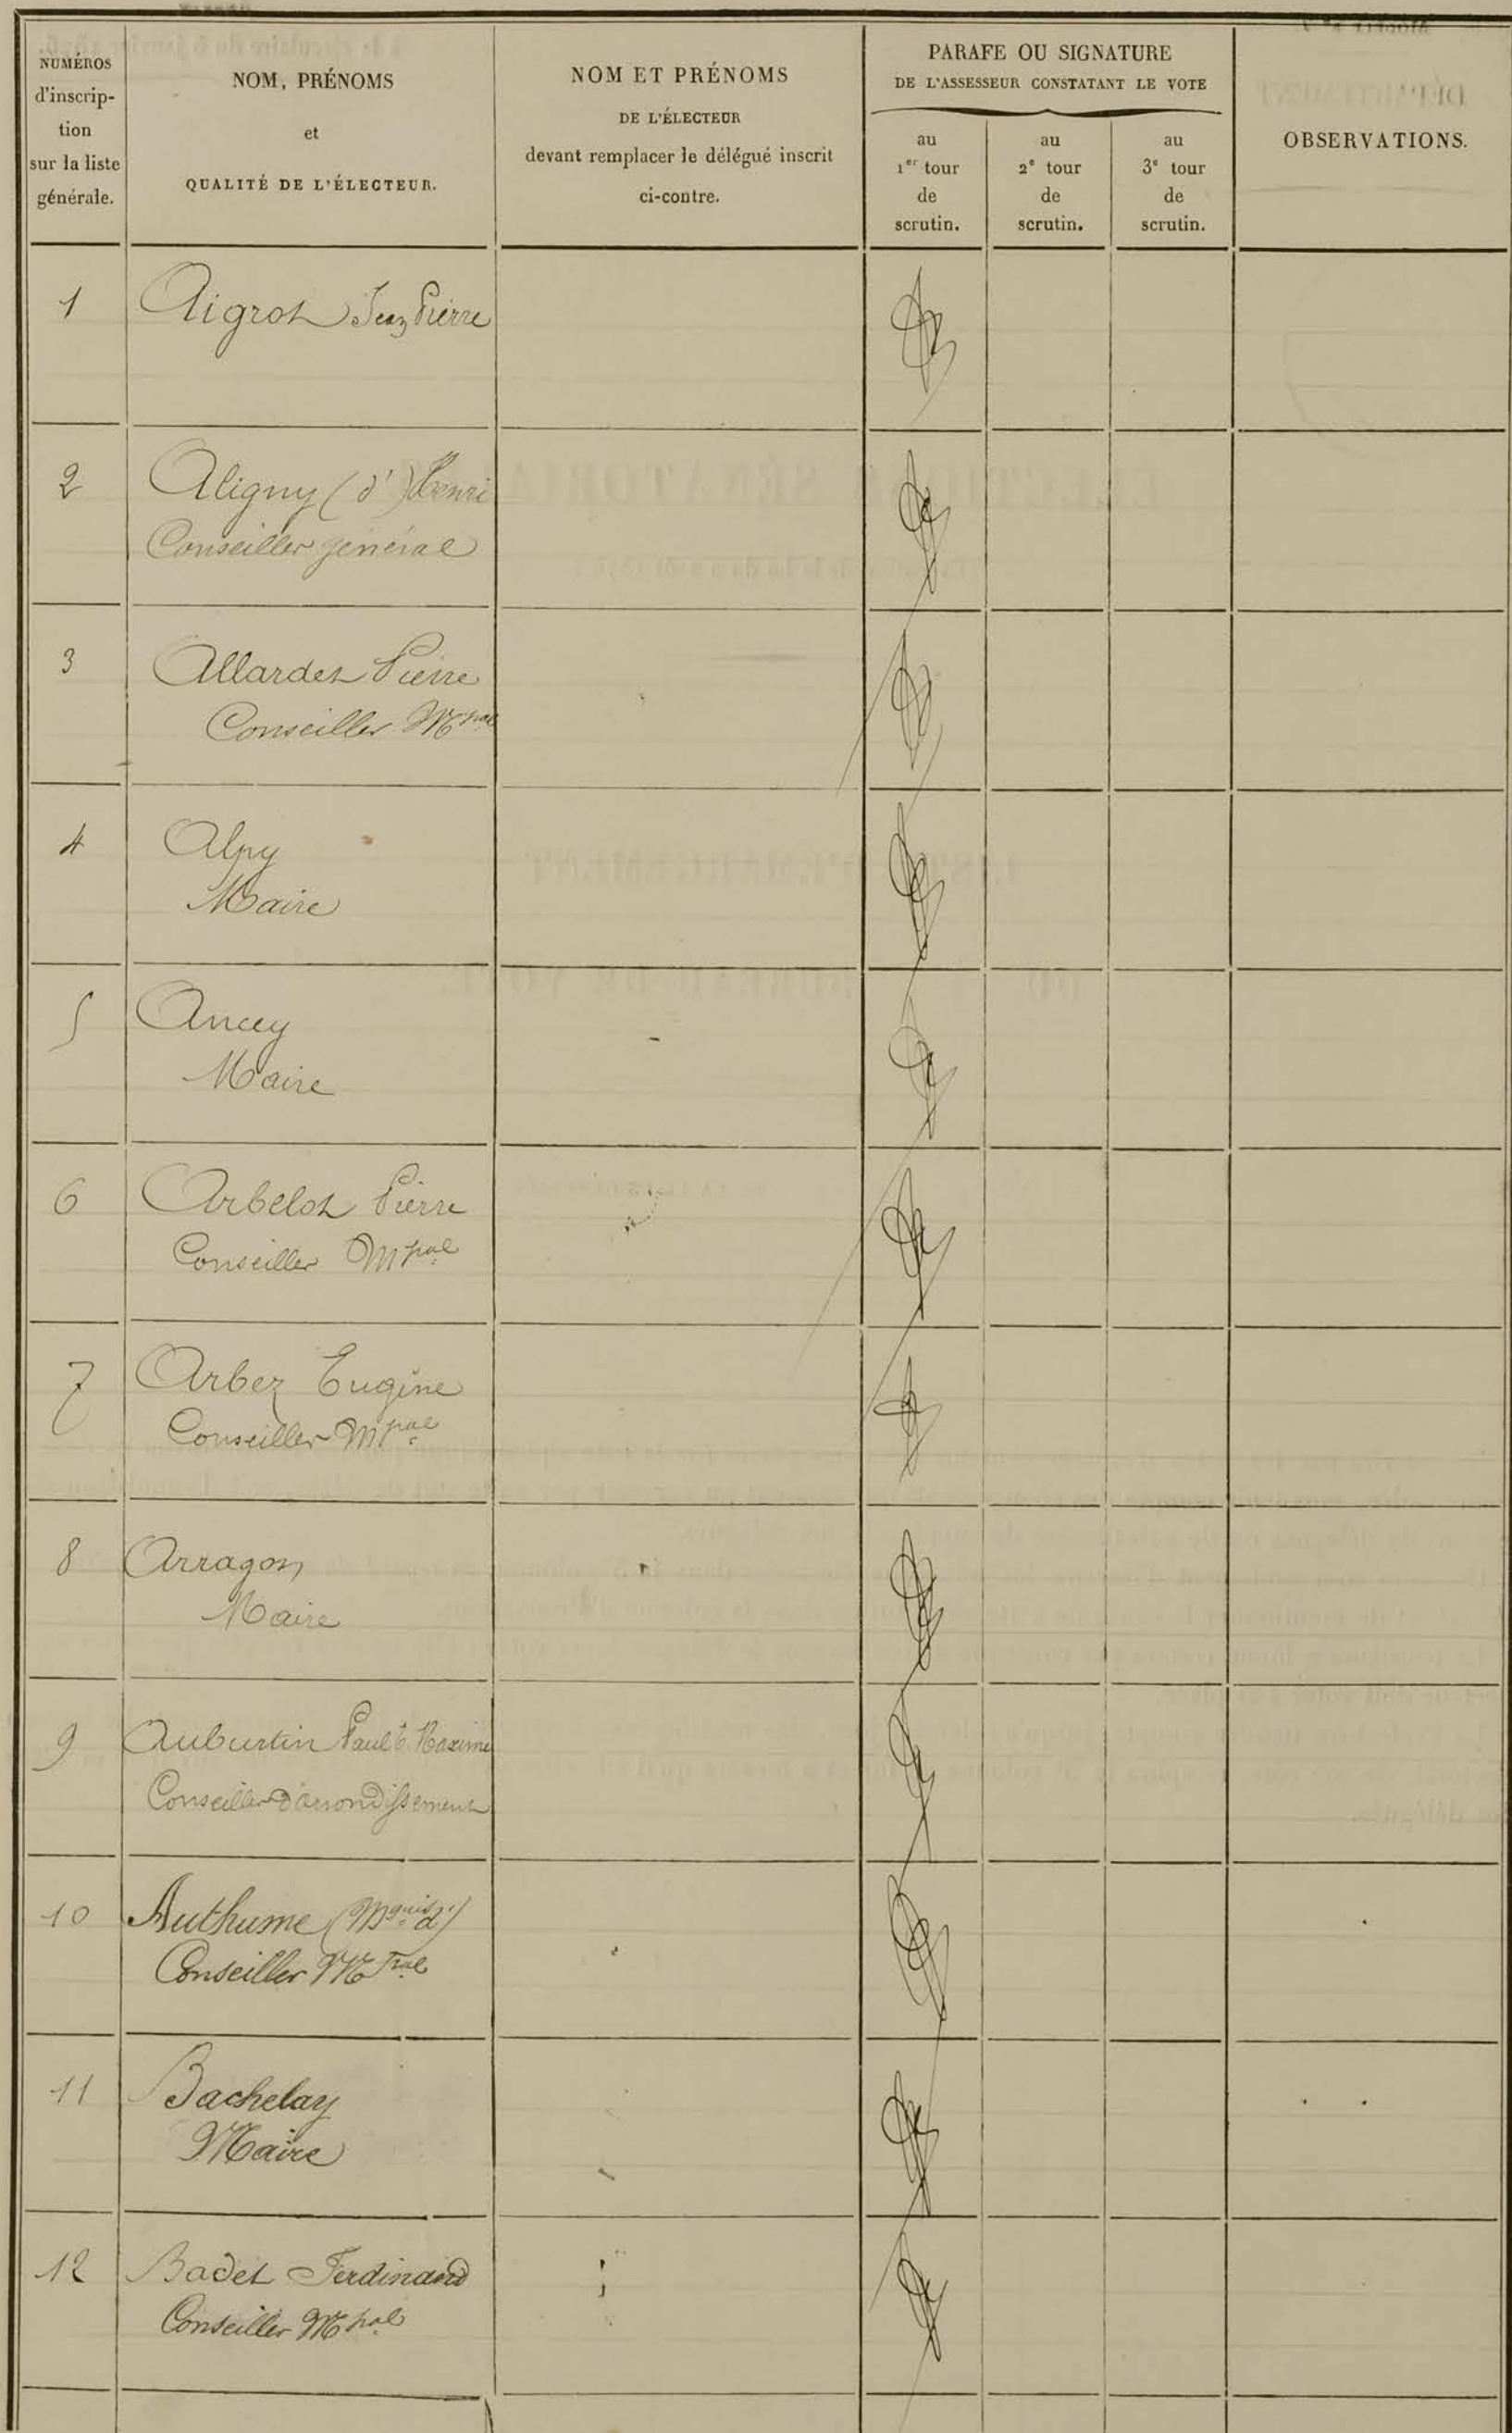 NUMÉROS
d'inscrip-
tion
sur la liste
générale.
NOM, PRÉNOMS
et
QUALITÉ DE L'ÉLECTEUR.
NOM ET PRÉNOMS
DE L'ÉLECTEUR
devant remplacer le délégué inscrit
ci-contre.
PARAFE OU SIGNATURE
DE L'ASSESSEUR CONSTATANT LE VOTE
au
1er tour
de
scrutin.
au
2e tour
de
scrutin.
au
3e tour
de
scrutin.
OBSERVATIONS.
1 Aigrot Jean Pierre
2 Aligny (d') Henri
Conseiller général
3 Allardet Pierre
Conseiller Mpal
4 Alpy
Maire
5 Ancey
Maire
6 Arbelot Pierre
Conseiller Mpal
7 Arbez Eugène
Conseiller Mpal
8 Arragon
Maire
9 Auburtin Paul E. Maxime
Conseiller d'arrondissement
10 Authume (Mquis d')
Conseiller Mpal
11 Bachelay
Maire
12 Badet Ferdinand
Conseiller Mpal